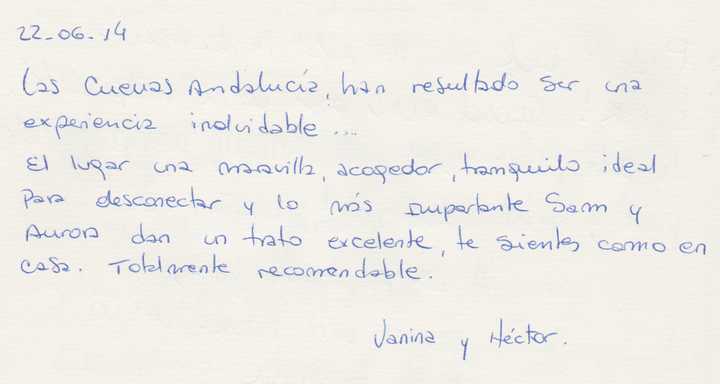 22-06-14
Las Cuevas Andalucía, han resultado ser una
experiencia inolvidable ...
El lugar una maravilla, acogedor, tranquilo ideal
Para desconectar y lo más importante Sam y
Aurora dan un trato excelente, te sientes como en
casa. Totalmente recomendable.
Janina y Héctor.